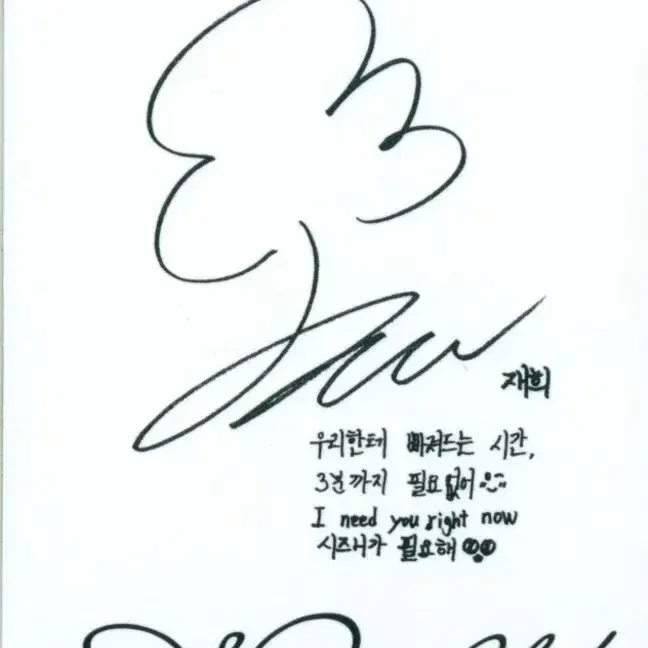 재희
우리한테 빠져드는 시간,
3분까지 필요없어
I need you right now
시즈니가 필요해